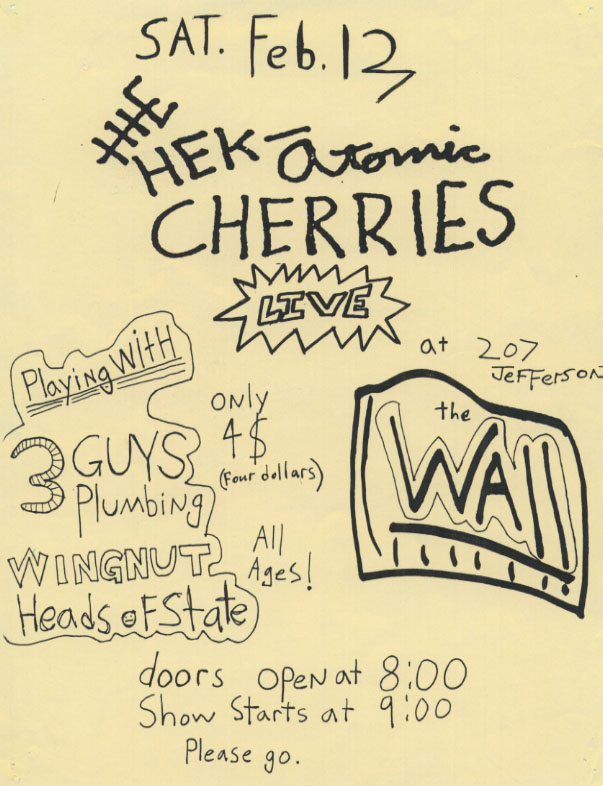 SAT. Feb. 12
THE
HEK-atomic
CHERRIES
LIVE
at 207
JEFFERSON
the
WAll
Playing WitH
3 GUYS
Plumbing
WINGNUT
Heads oF State
only
4$
(Four dollars)
All
Ages!
doors OPEN at 8:00
Show Starts at 9:00
Please go.